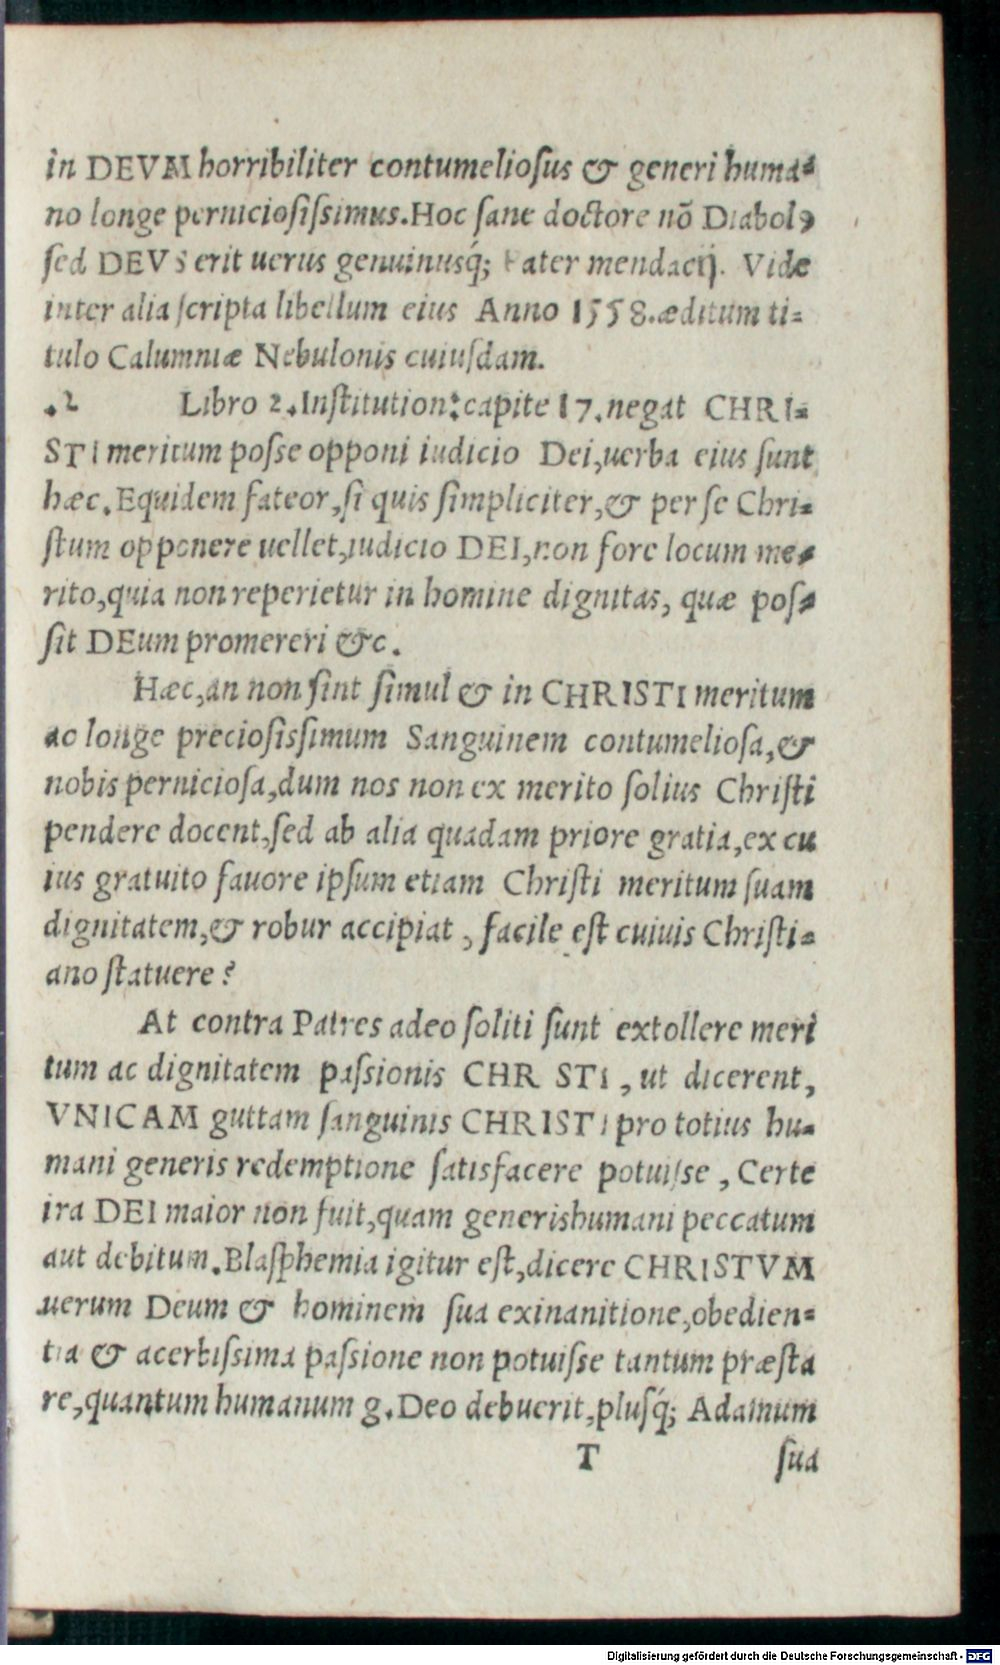 in DEVM horribiliter contumelioſus & generi huma⸗
no longe pernicioſiſsimus. Hoc ſane doctore nõ Diabolꝰ
ſed DEVS erit uerus genuinusq́; Pater mendacij. Vide
inter alia ſcripta libellum eius Anno 1558. æditum ti⸗
tulo Calumniæ Nebulonis cuiuſdam.
.2 Libro 2. Inſtitution: capite 17. negat CHRI⸗
STI meritum poſſe opponi iudicio Dei, uerba eius ſunt
hæc. Equidem fateor, ſi quis ſimpliciter, & per ſe Chri⸗
ſtum opponere uellet, iudicio DEI, non fore locum me⸗
rito, quia non reperietur in homine dignitas, quæ poſ⸗
ſit DEum promereri &c.
Hæc, an non ſint ſimul & in CHRISTI meritum
ac longe precioſiſſimum Sanguinem contumelioſa, &
nobis pernicioſa, dum nos non ex merito ſolius Chriſti
pendere docent, ſed ab alia quadam priore gratia, ex cu
ius gratuito fauore ipſum etiam Chriſti meritum ſuam
dignitatem, & robur accipiat, facile eſt cuiuis Chriſti⸗
ano ſtatuere?
At contra Patres adeo ſoliti ſunt extollere meri
tum ac dignitatem paſsionis CHR STI, ut dicerent,
VNICAM guttam ſanguinis CHRISTI pro totius hu⸗
mani generis redemptione ſatisfacere potuiſse, Certe
ira DEI maior non fuit, quam generishumani peccatum
aut debitum. Blaſphemia igitur eſt, dicere CHRISTVM
uerum Deum & hominem ſua exinanitione, obedien⸗
tia & acerbiſsima paſsione non potuiſse tantum præſta
re, quantum humanum g. Deo debuerit, pluſq́; Adamum
T ſua
Digitalisierung gefördert durch die Deutsche Forschungsgemeinschaft - DFG